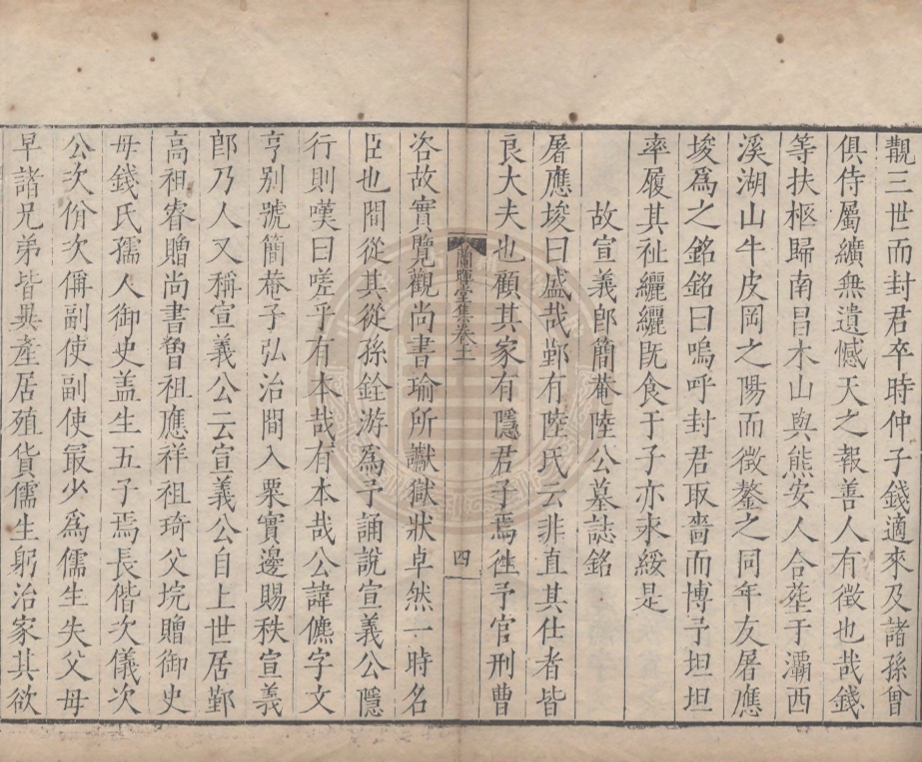 覩三世而封君卒時仲子錢適來及諸孫曾
俱侍屬纊無遺憾天之報善人有徵也哉錢
等扶柩歸南昌木山與熊安人合塟于灞西
溪湖山牛皮岡之陽而徵鏊之同年友屠應
埈爲之銘銘曰嗚呼封君取嗇而博予坦坦
率履其祉纚纚旣食于子亦永綏是
故宣義郎簡菴陸公墓誌銘
屠應埈曰盛哉鄞有陸氏云非直其仕者皆
良大夫也顧其家有隱君子焉徃予官刑曹
蘭暉堂集卷十一
四
咨故實覽觀尚書瑜所讞獄狀卓然一時名
臣也間從其從孫銓游爲予誦說宣義公隱
行則嘆曰嗟乎有本哉有本哉公諱儦字文
亨别號簡菴子弘治間入粟實邊賜秩宣義
郎乃人又稱宣義公云宣義公自上世居鄞
高祖睿贈尚書曾祖應祥祖琦父垸贈御史
母錢氏孺人御史盖生五子焉長偕次儀次
公次佾次偁副使副使最少爲儒生失父母
早諸兄弟皆異產居殖貨儒生躬治家其欲